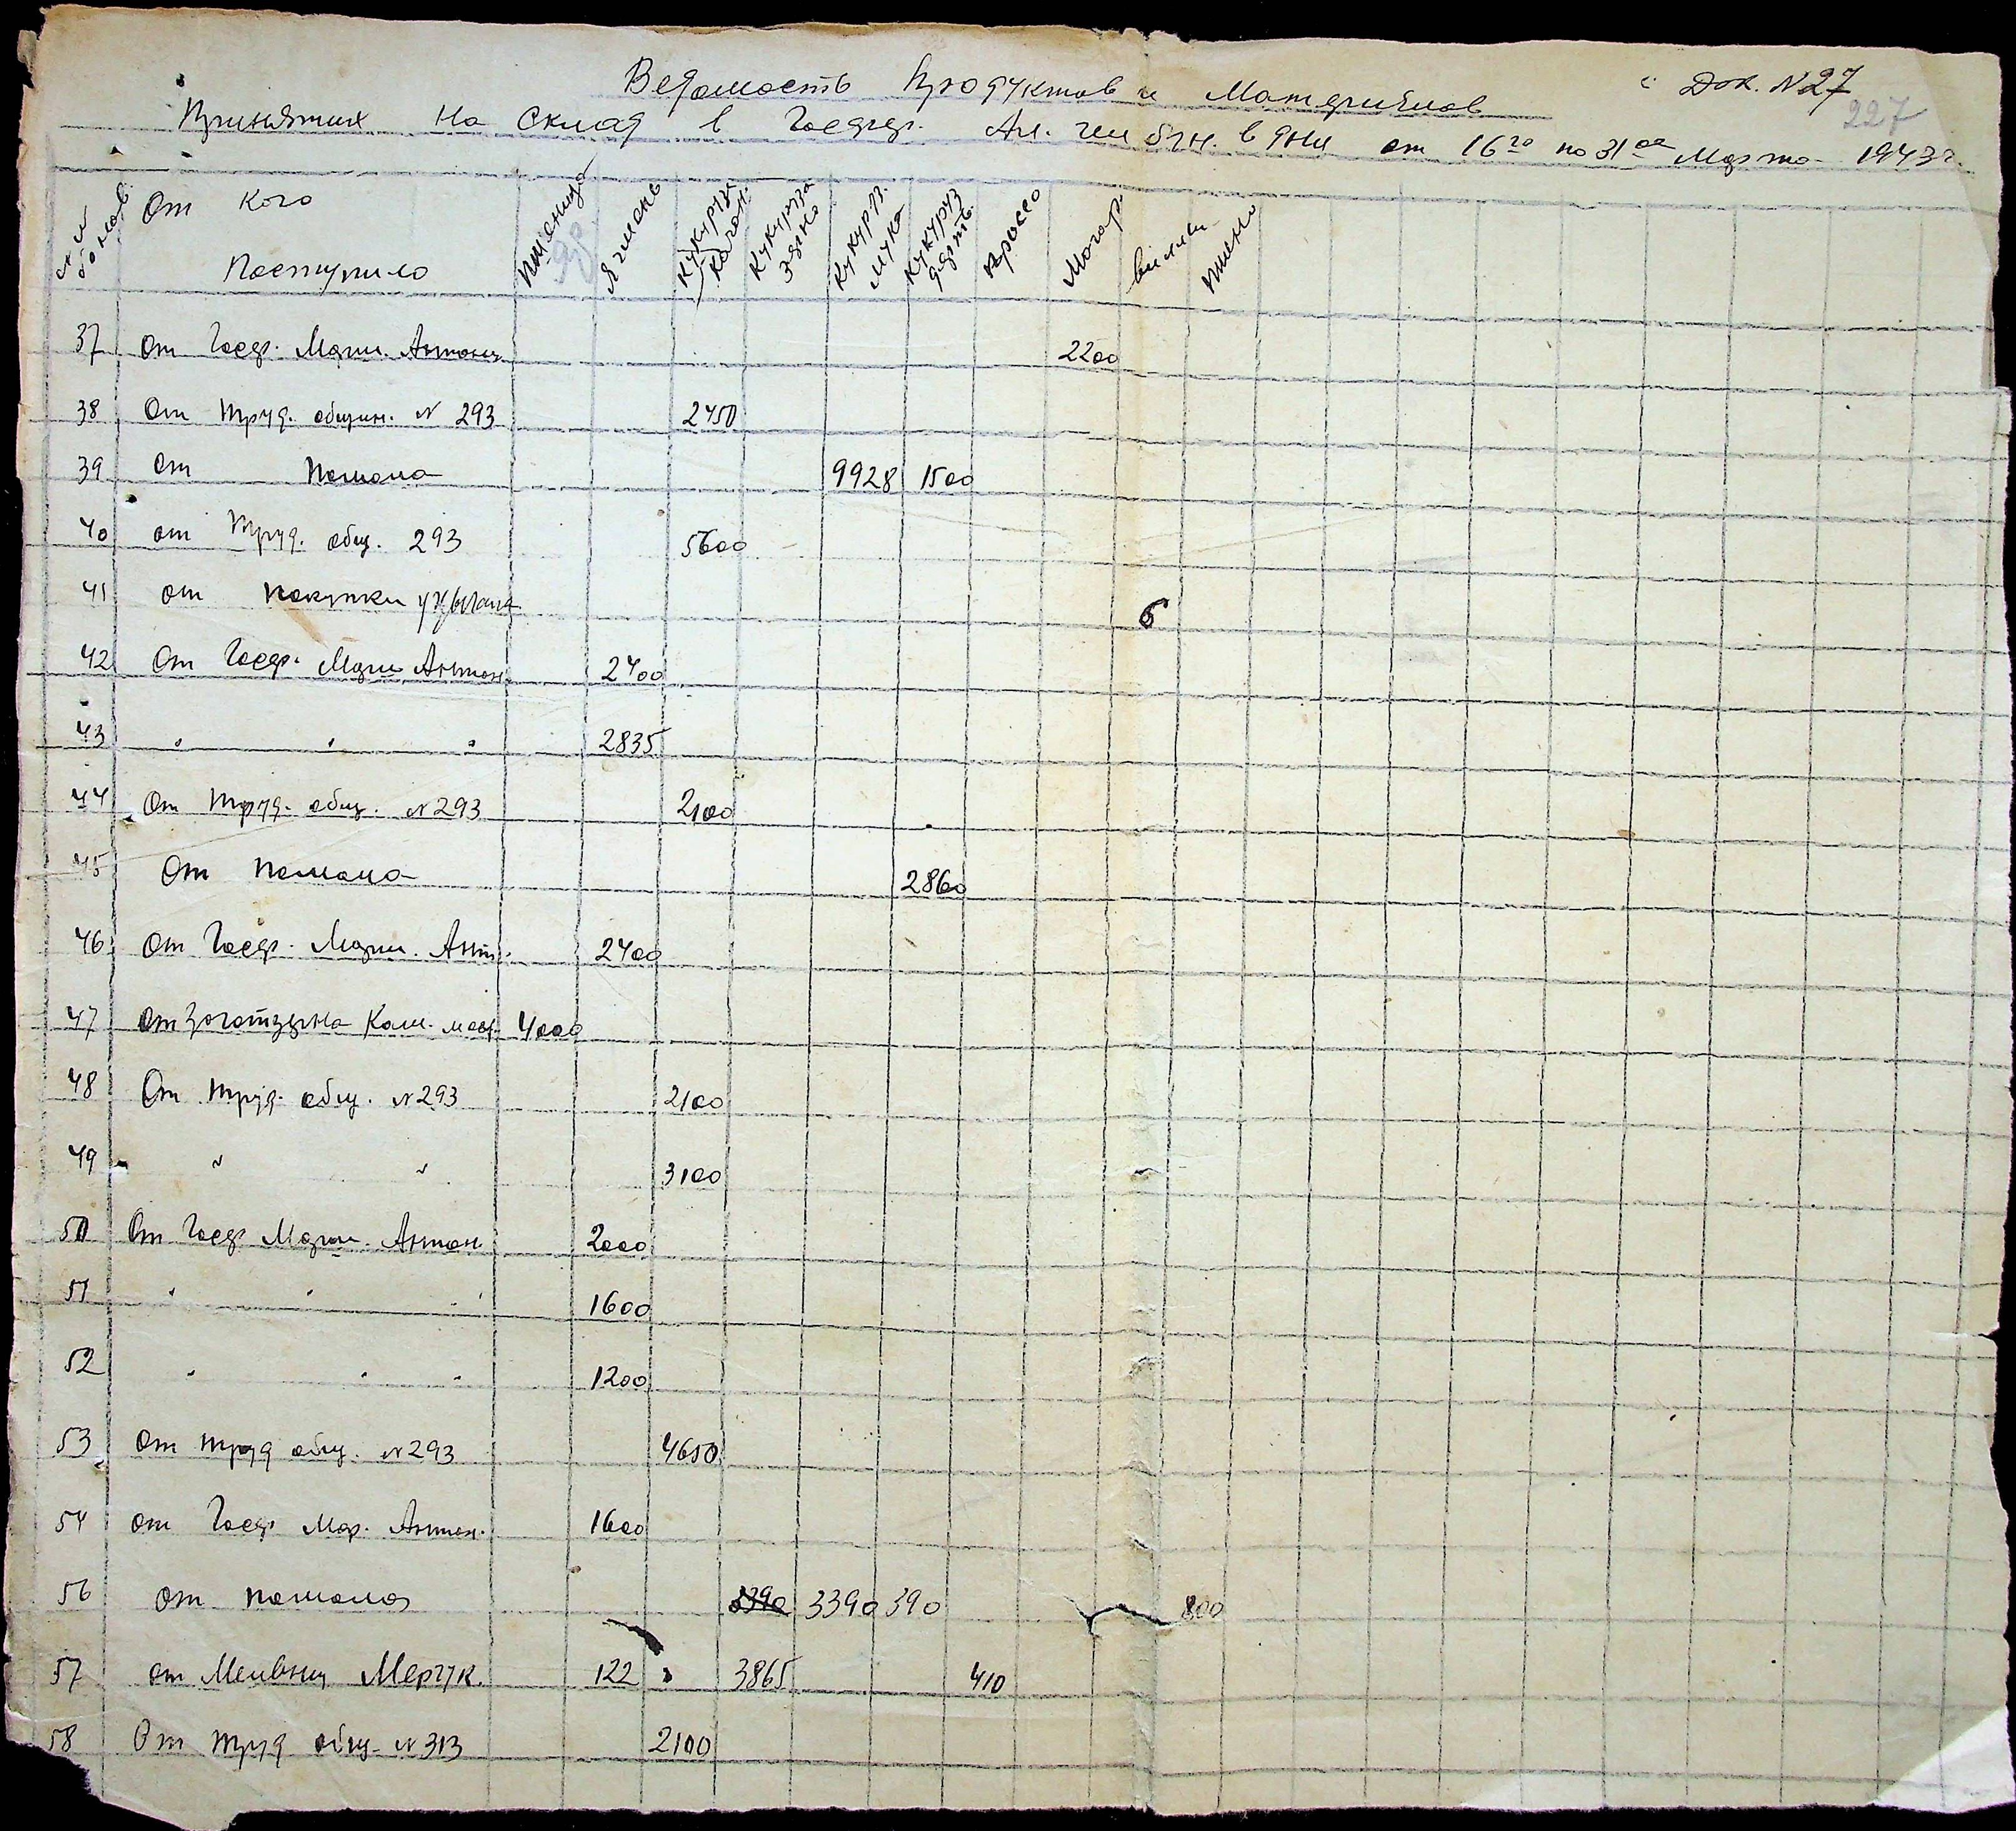 Ведомость Продуктов и Материялов
Док. N 27
227
Принятых на Склад в Госгод. Ал. в дни от 16го по 31ое Марта 1943 г.
От кого Поступило Пшеница Ячмень Кукуруза качан. Кукуруза зерно Кукуруз. мука Кукуруз дерть Проссо Могар вилки Пшено
37 От Марин. Антоно 2200
38 От Труд. общин. N 293 2450
39 От Помола 9928 1500
40 от Труд. общ. 293 5600
41 от покупки 6
42 От Мари Антон. 2400
43 " " " 2835
44 От Труд. общ. N 293 2100
45 От помола 2860
46 От Марин. Ант. 2400
47 От Заготзерна 4000
48 От Труд. общ. N 293 2100
49 " " 3100
50 От Марин. Антон 2000
51 " " " 1600
52 " " " 1200
53 От труд общ. N 293 4650
54 от Мар. Антон. 1600
56 От помола 3390 3390 390 800
57 от Мелвниц Мергук. 122 3865 410
58 От труд общ. N 313 2100